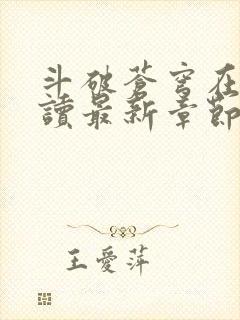 斗破蒼穹在
讀最新章節
王愛萍